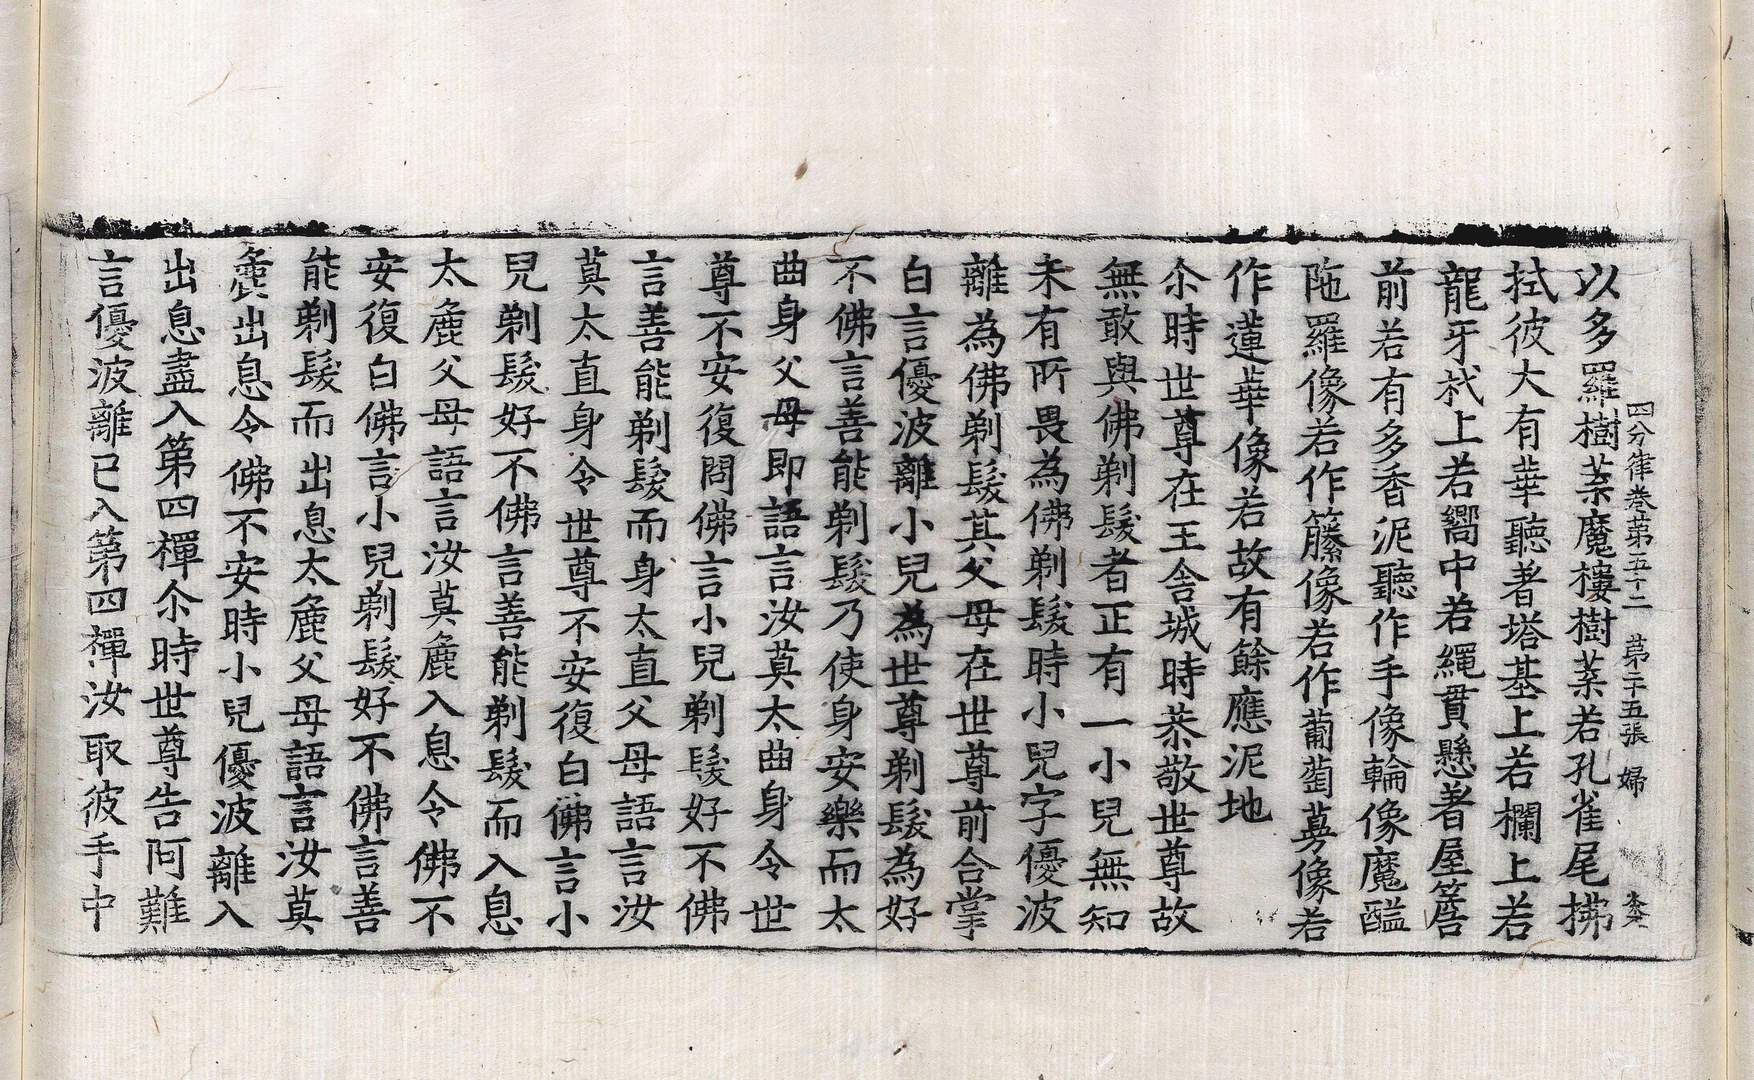 四分律卷第五十二 第二十五張 婦
以多羅樹葉魔摟樹葉若孔雀尾拂
拭彼大有華聽著塔基上若欄上若
龍牙杙上若嚮中若繩貫懸著屋簷
前若有多香泥聽作手像輪像魔醯
陁羅像若作藤像若作蒲萄蔓像若
作蓮華像若故有餘應泥地
尒時世尊在王舍城時恭敬世尊故
無敢與佛剃髮者正有一小兒無知
未有所畏為佛剃髮時小兒字優波
離為佛剃髮其父母在世尊前合掌
白言優波離小兒為世尊剃髮為好
不佛言善能剃髮乃使身安樂而太
曲身父母即語言汝莫太曲身令世
尊不安復問佛言小兒剃髮好不佛
言善能剃髮而身太直父母語言汝
莫太直身令世尊不安復白佛言小
兒剃髮好不佛言善能剃髮而入息
太麁父母語言汝莫麁入息令佛不
安復白佛言小兒剃髮好不佛言善
能剃髮而出息太麁父母語言汝莫
麁出息令佛不安時小兒優波離入
出息盡入第四禪尒時世尊告阿難
言優波離已入第四禪汝取彼手中